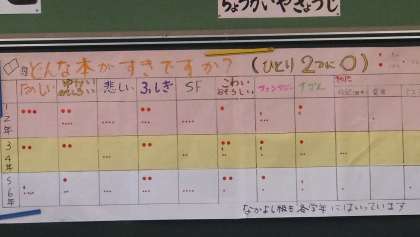 ちょうかいやきょうじ
どんな本がすきですか？ (ひとり2つに○)
たのしい
悲しい
ふしぎ
SF
こわい
おそろしい
ファンタジー
1
2年
3
4年
5
6年
なかよし級も各学年にはいっています